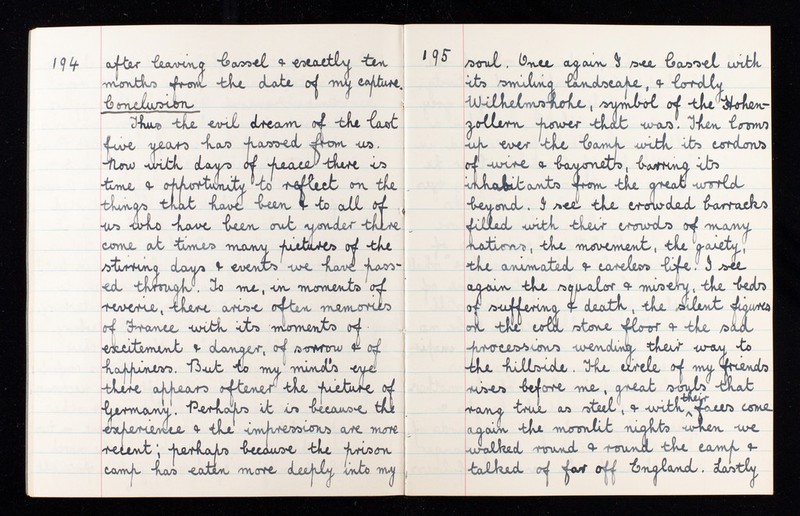 194
after leaving Cassel & exactly ten
months from the date of my capture.
Conclusion
Thus the evil dream of the last
five years has passed from us.
Now with days of peace there is
time & opportunity to reflect on the
things that have been & to all of
us who have been out yonder there
come at times many pictures of the
stirring days & events we have pass-
ed through. To me, in moments of
reverie, there arise often memories
of France with its moments of
excitement & danger, of sorrow & of
happiness. But to my mind's eye
there appears oftener the picture of
Germany. Perhaps it is because the
experience & the impressions are more
recent; perhaps because the prison
camp has eaten more deeply into my
195
soul. Once again I see Cassel with
its smiling landscape, & lordly
Wilhelmshohe, symbol of the Hohen-
zollern power that was. Then looms
up ever the Camp with its cordons
of wire & bayonets, barring its
inhabitants from the great world
beyond. I see the crowded barracks
filled with their crowds of many
nations, the movement, the gaiety,
the animated & careless life. I see
again the squalor & misery, the beds
of suffering & death, the silent figures
on the cold stone floor & the sad
processions wending their way to
the hillside. The circle of my friends
rises before me, great souls that
rang true as steel, & with their faces come
again the moonlit nights when we
walked round & round the camp &
talked of far off England. Lastly